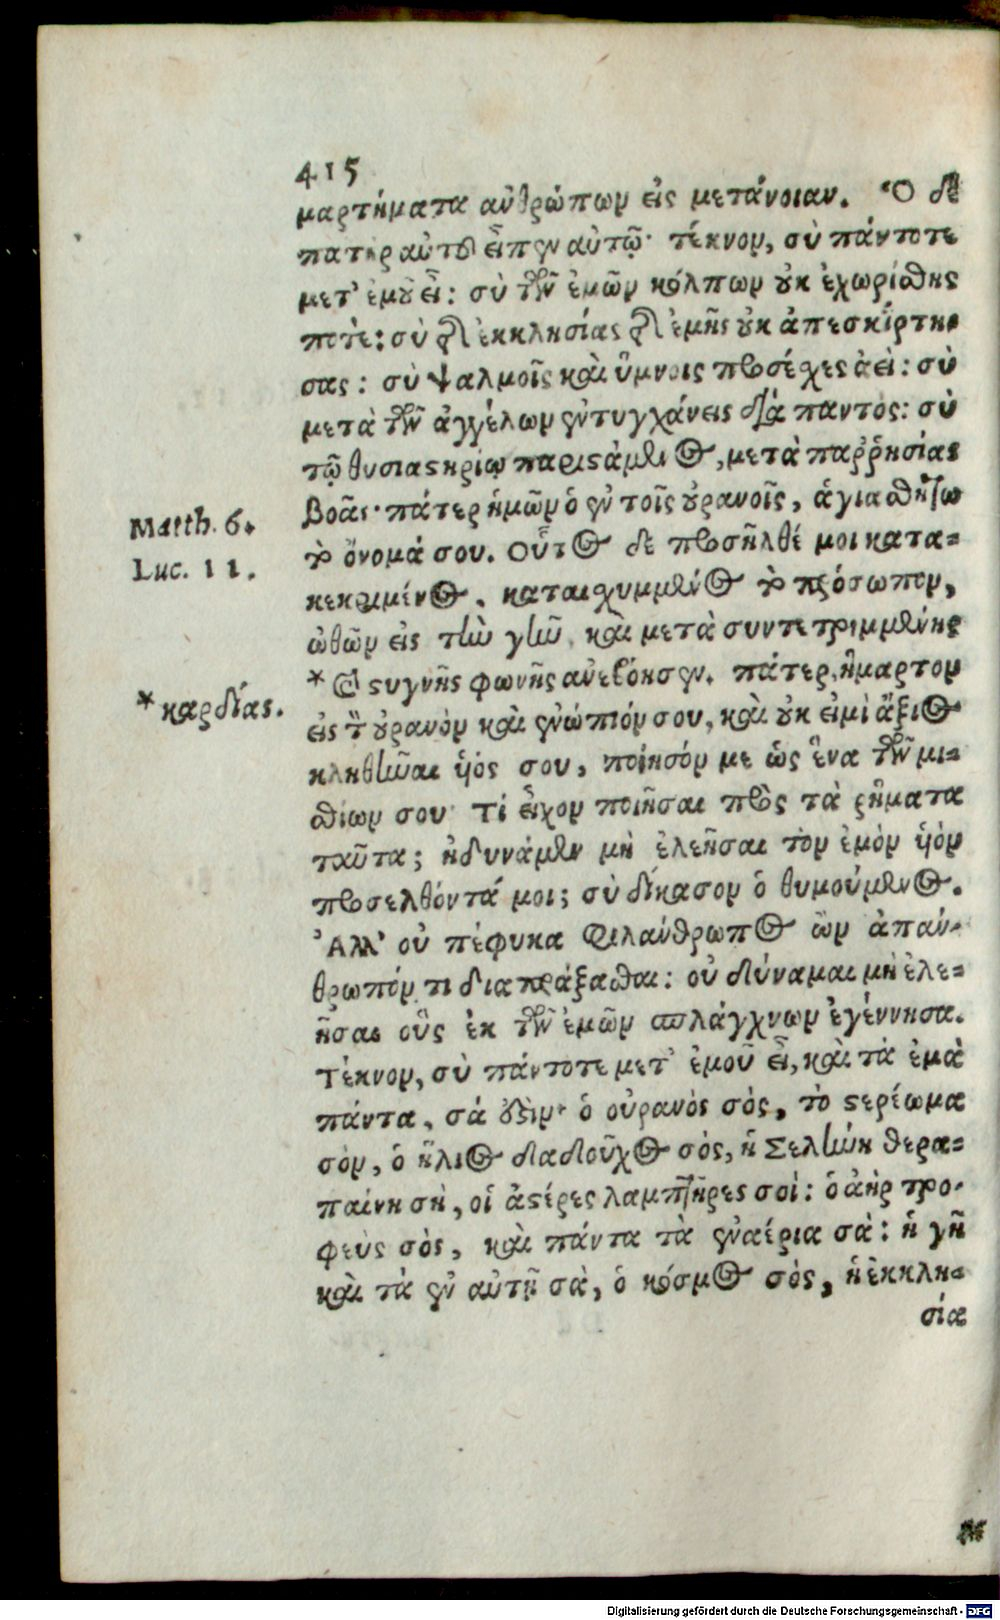 415
μαρτήματα ἀνθρώπων εἰς μετάνοιαν. Ὁ δὲ
πατὴρ αὐτοῦ εἶπεν αὐτῷ· τέκνον, σὺ πάντοτε
μετ' ἐμοῦ εἶ: σὺ τῶν ἐμῶν κόλπων οὐκ ἐχωρίσθης
ποτέ: σὺ τῆς ἐκκλησίας τῆς ἐμῆς οὐκ ἀπεσκίρτη-
σας: σὺ ψαλμοῖς καὶ ὕμνοις προσέχες ἀεί: σὺ
μετὰ τῶν ἀγγέλων ἐντυγχάνεις διὰ παντός: σὺ
τῷ θυσιαστηρίῳ παριστάμενος, μετὰ παῤῥησίας
βοᾷς· πάτερ ἡμῶν ὁ ἐν τοῖς οὐρανοῖς, ἁγιασθήτω
Matth. 6.
τὸ ὄνομά σου. Οὗτος δὲ προσῆλθέ μοι κατα-
Luc. 11.
κεκομμένος, καταισχυμμένος τὸ πρόσωπον,
ὠθῶν εἰς τὴν γῆν, καὶ μετὰ συντετριμμένης
* καὶ στυγνῆς φωνῆς ἀνεβόησεν. πάτερ, ἥμαρτον
* καρδίας.
εἰς τὸν οὐρανὸν καὶ ἐνώπιόν σου, καὶ οὐκ εἰμὶ ἄξιος
κληθῆναι ὑιός σου, ποίησόν με ὡς ἕνα τῶν μι-
σθίων σου· Τί εἶχον ποιῆσαι πρὸς τὰ ῥήματα
ταῦτα; ἠδυνάμην μὴ ἐλεῆσαι τὸν ἐμὸν ὑιὸν
προσελθόντά μοι; σὺ δίκασον ὁ θυμούμενος.
Ἀλλ' οὐ πέφυκα φιλάνθρωπος ὢν ἀπάν-
θρωπόν τι διαπράξασθαι: οὐ δύναμαι μὴ ἐλε-
ῆσαι οὓς ἐκ τῶν ἐμῶν σπλάγχνων ἐγέννησα.
Τέκνον, σὺ πάντοτε μετ' ἐμοῦ εἶ, καὶ τὰ ἐμὰ
πάντα, σά ἐστιν· ὁ οὐρανὸς σὸς, τὸ στερέωμα
σὸν, ὁ ἥλιος δᾳδοῦχος σὸς, ἡ Σελήνη θερα-
παίνη σὴ, οἱ ἀστέρες λαμπτῆρες σοί: ὁ ἀὴρ τρο-
φεὺς σὸς, καὶ πάντα τὰ ἐναέρια σὰ: ἡ γῆ
καὶ τὰ ἐν αὐτῇ σὰ, ὁ κόσμος σὸς, ἡ ἐκκλη-
σία
Digitalisierung gefördert durch die Deutsche Forschungsgemeinschaft - DFG